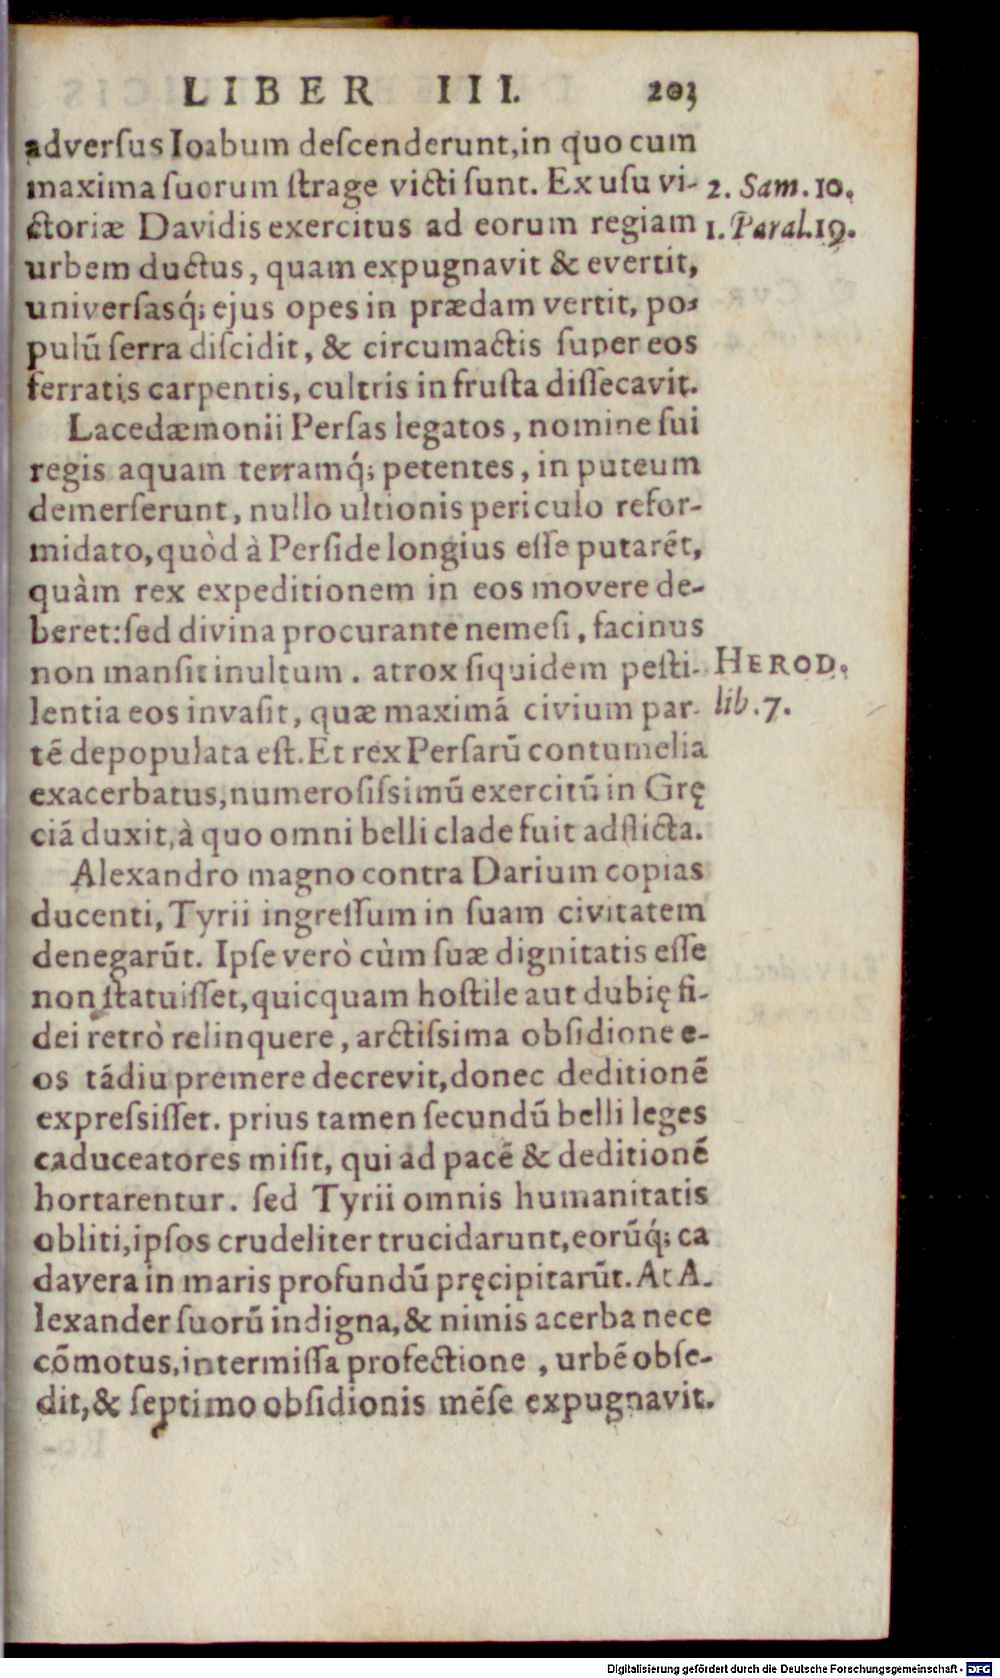 LIBER III. 203
adversus Ioabum descenderunt, in quo cum
maxima suorum strage victi sunt. Ex usu vi- 2. Sam. 10.
ctoriæ Davidis exercitus ad eorum regiam 1. Paral. 19.
urbem ductus, quam expugnavit & evertit,
universasq́; ejus opes in prædam vertit, po-
pulū serra discidit, & circumactis super eos
ferratis carpentis, cultris in frusta dissecavit.
Lacedæmonii Persas legatos, nomine sui
regis aquam terramq́; petentes, in puteum
demerserunt, nullo ultionis periculo refor-
midato, quòd à Perside longius esse putarēt,
quàm rex expeditionem in eos movere de-
beret: sed divina procurante nemesi, facinus
non mansit inultum. atrox siquidem pesti- HEROD.
lentia eos invasit, quæ maximā civium par- lib. 7.
tē depopulata est. Et rex Persarū contumelia
exacerbatus, numerosissimū exercitū in Grę
ciā duxit, à quo omni belli clade fuit adflicta.
Alexandro magno contra Darium copias
ducenti, Tyrii ingressum in suam civitatem
denegarūt. Ipse verò cùm suæ dignitatis esse
non statuisset, quicquam hostile aut dubię fi-
dei retrò relinquere, arctissima obsidione e-
os tādiu premere decrevit, donec deditionē
expressisset. prius tamen secundū belli leges
caduceatores misit, qui ad pacē & deditionē
hortarentur. sed Tyrii omnis humanitatis
obliti, ipsos crudeliter trucidarunt, eorūq́; ca
davera in maris profundū pręcipitarūt. At A-
lexander suorū indigna, & nimis acerba nece
cōmotus, intermissa profectione, urbē obse-
dit, & septimo obsidionis mēse expugnavit.
Digitalisierung gefördert durch die Deutsche Forschungsgemeinschaft - DFG